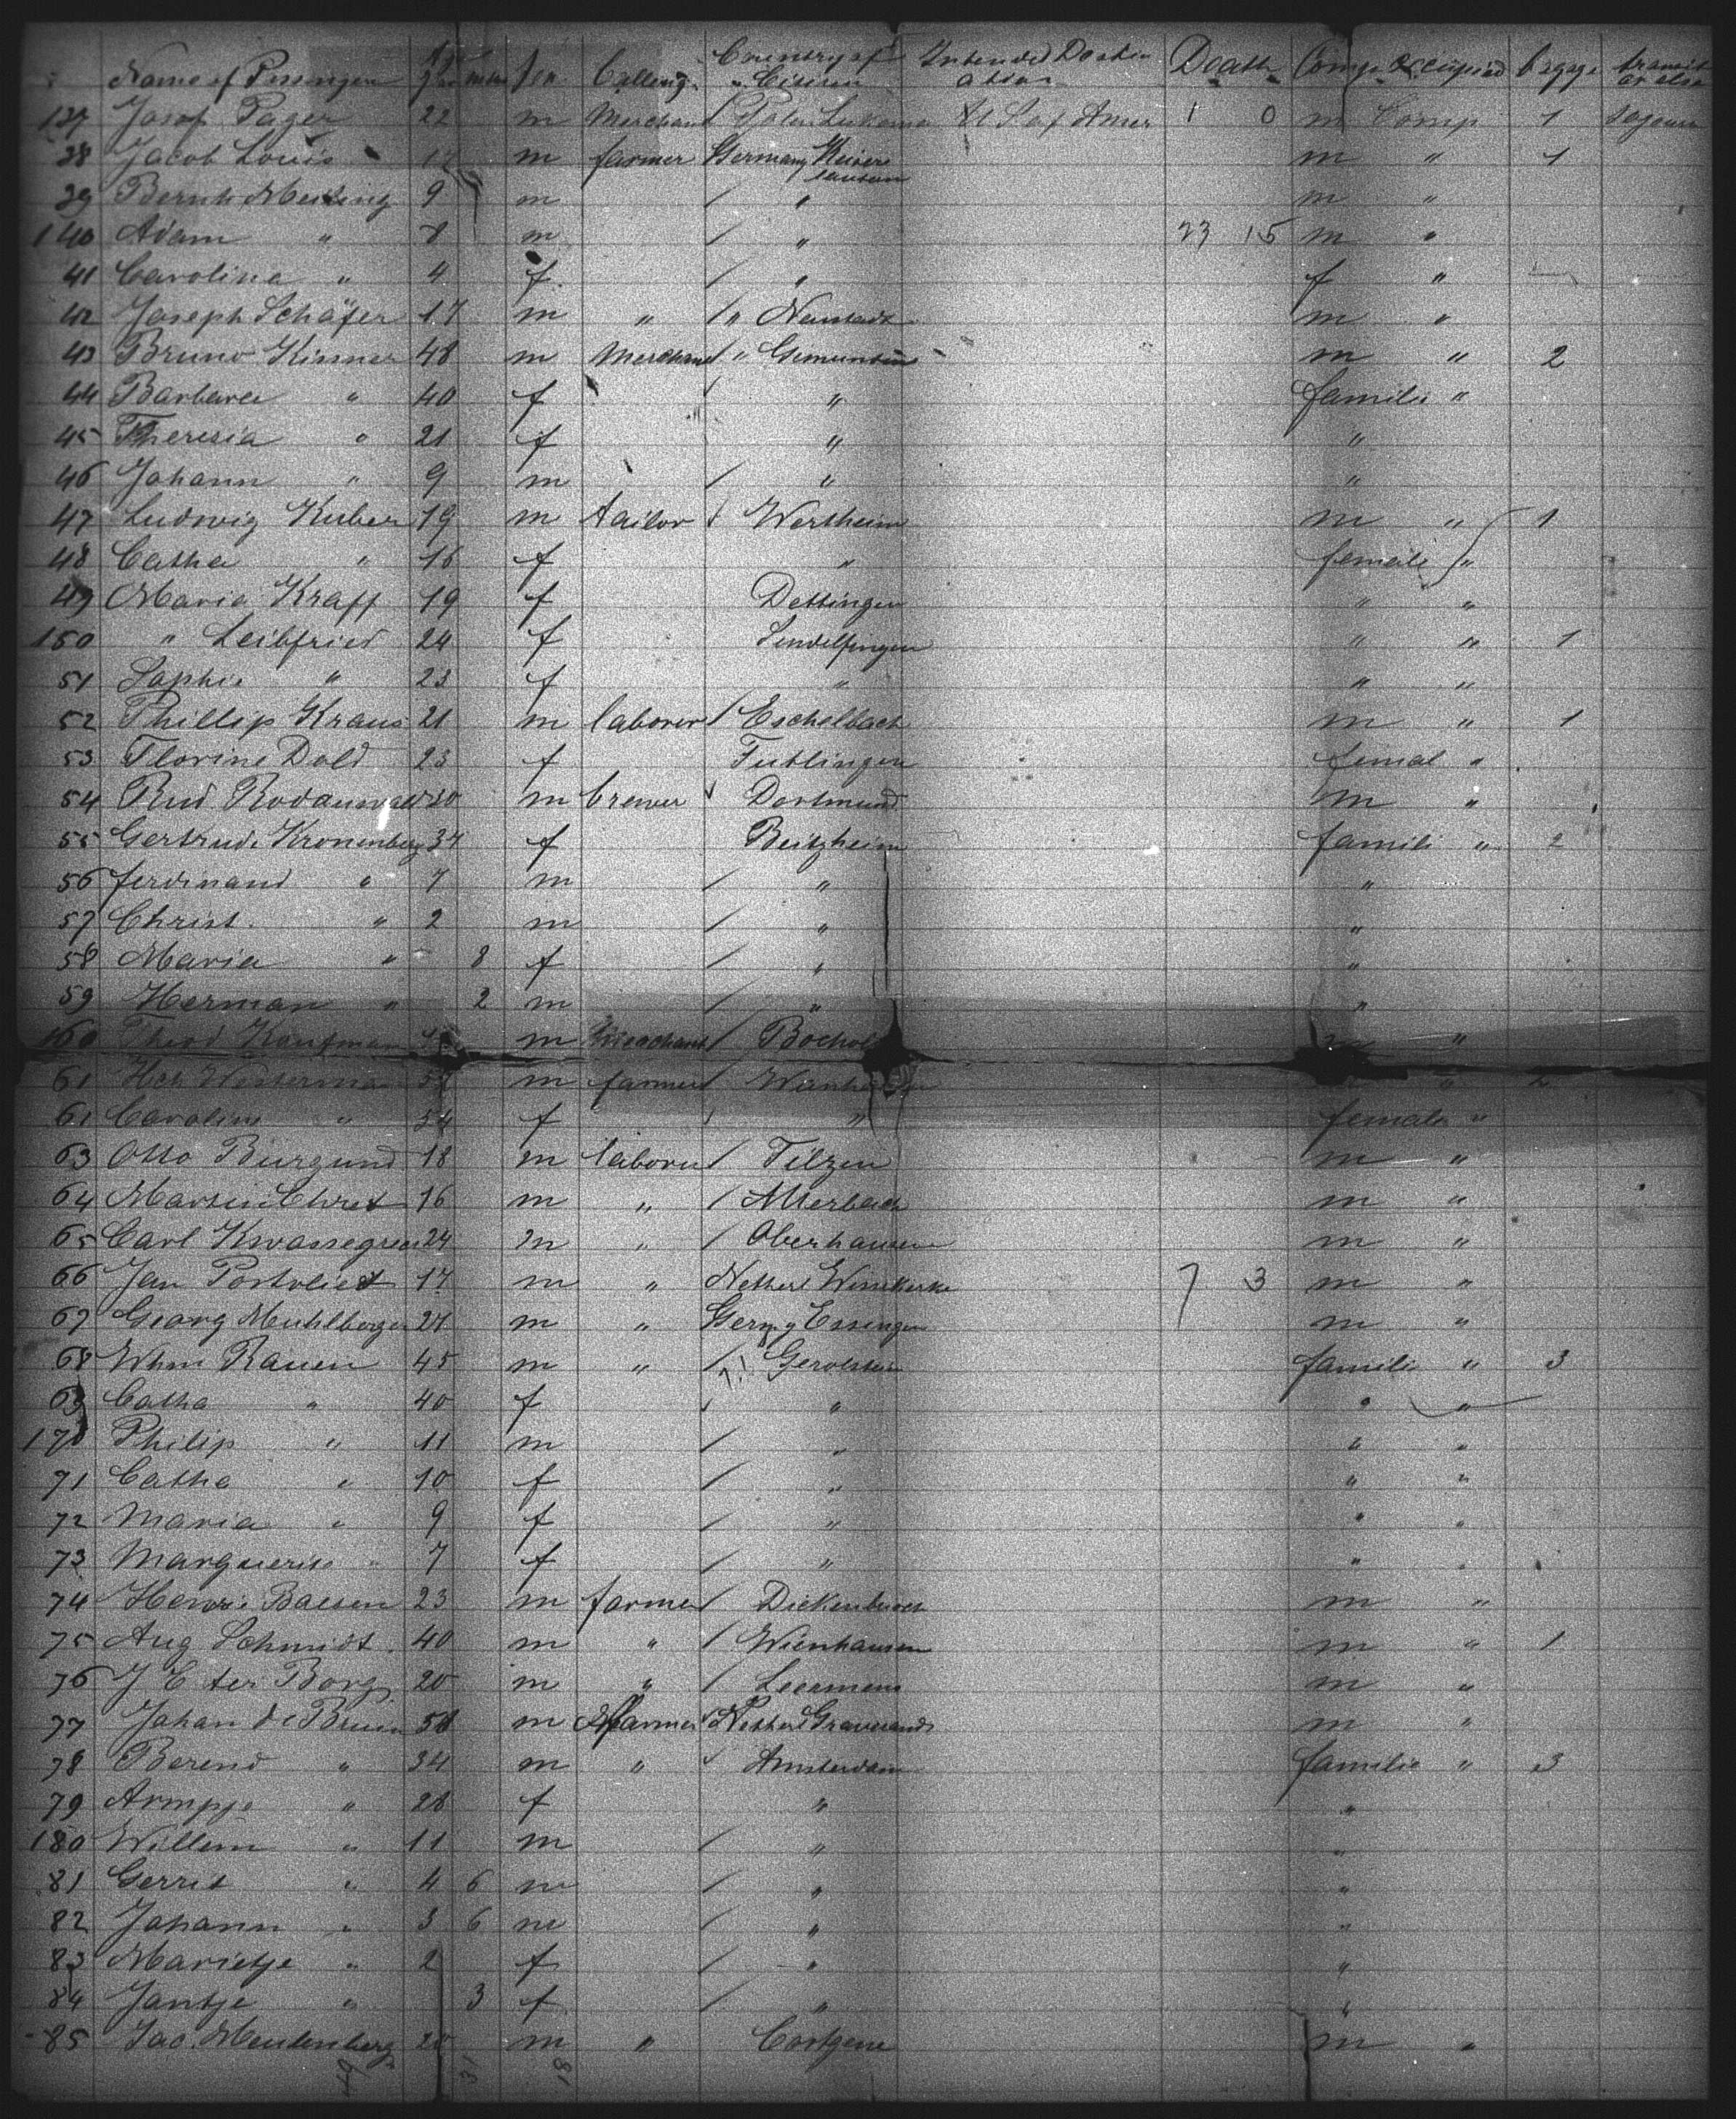 Name of Passenger Age Yrs Mths Sex Calling Country of Citizen Intended Destination Death Comp occupied bagage transit or also
137 Josef Pager 22 m Merchant U S of Amer 1 0 m Comp 1 sojourn
38 Jacob Louis m farmer Germany m " 1
39 Bernh 9 m / " m "
140 Adam " 8 m / " 23 15 m "
41 Carolina " 4 f / " f "
42 Joseph Schäfer 17 m " / " Neustadt m "
43 Bruno Kissner 48 m Merchant / " m " 2
44 Barbara " 40 f / " familie "
45 Theresia " 21 f " "
46 Johann " 9 m / " "
47 Ludwig Kuber 19 m tailor / Wertheim m " 1
48 Catha " 16 f " female "
49 Maria Krapf 19 f Dettingen " "
150 " Leibfried 24 f Sindelfingen " " 1
51 Sophie " 23 f " " "
52 Phillip Kraus 21 m laborer / Eschelbach m " 1
53 Florine Dold 23 f Tutlingen femal "
54 Rud Rodauwald 20 m brewer Dortmund m "
55 Gertrude Kronenberg 34 f famili " 2
56 ferdinand " 7 m / " "
57 Christ. " 2 m / " "
58 Maria " - 8 f / " "
59 Herman " 2 m / " "
160 Theod Kaufman m Merchant / Bocholt m "
61 Hch Westerman m farmer / " 2
61 Caroline " 54 f / " female "
63 Otto Burgund 18 m laborer / Tilzen m "
64 Martin 16 m " / m "
65 Carl 24 m " / Oberhausen m "
66 Jan 17 m " Netherl 7 3 m "
67 Georg Muhlberger 24 m " Germy Essingen m "
68 Whm Rauen 45 m " / Gerolstein familie " 3
69 Catha " 40 f / " " "
170 Philip " 11 m / " " "
71 Catha " 10 f / " " "
72 Maria " 9 f / " " "
73 Marguerite " 7 f / " " "
74 Henri 23 m farmer / m "
75 Aug Schmidt 40 m " / Wienhausen m " 1
76 J E ter Borg 20 m " / Leermens m "
77 Johan de Bruin m farmer Netherl m "
78 Berend " 34 m " Amsterdam familie " 3
79 " 28 f " "
180 Willem " 11 m / " "
81 Gerrit " 4 6 m / " "
82 Johann " 3 6 m / " "
83 Marietje " 2 f / " "
84 Jantje " 3 f / " "
85 Jac. Meulenberg 20 m " Cortgene m "
49 31 18